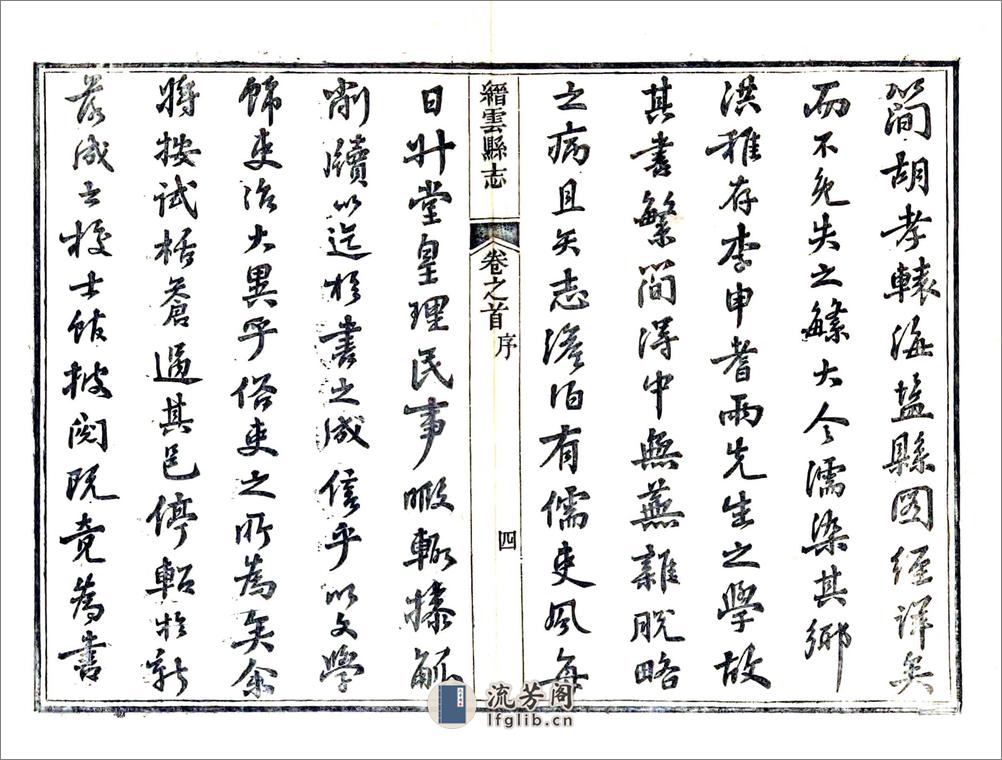 簡胡孝轅海盐縣图經詳矣
而不免失之繁大令濡染其鄉
洪稚存李申耆兩先生之學故
其書繁簡得中無蕪雜脱略
之病且矢志澹泊有儒吏風每
縉雲縣志
卷之首 序
四
日升堂皇理民事暇輒搽觚
削牘以迄於書之成信乎以文學
飾吏治大異乎俗吏之所為矣余
將按试栝蒼過其邑停軺於新
落成之校士館披阅既竟為書
流芳阁
lfglib.cn